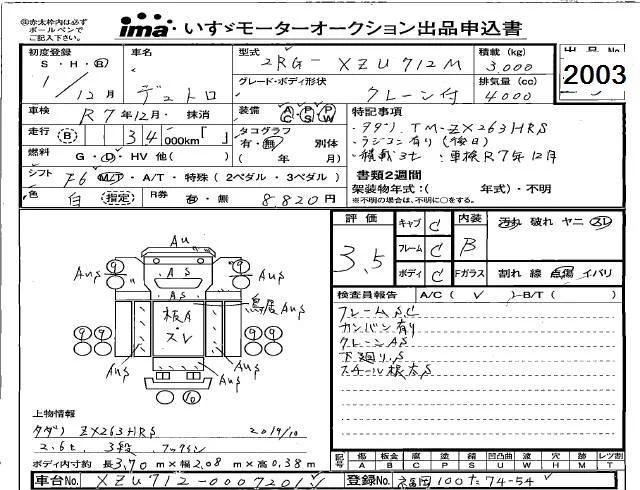 ㊟赤太枠内は必ずボールペンでご記入下さい。
ima いすゞモーターオークション出品申込書
初度登録 S・H・R 1/12月
車名 デュトロ
型式 2RG-XZU712M
積載 (kg) 3,000
出品No. 2003
グレード・ボディ形状 クレーン付
排気量 (cc) 4000
車検 R7年12月・抹消
装備 AC PS PW
特記事項
・タダノ.TM-ZX263HRS
・ラジコン有り(後日)
・積載3t ・車検R7年12月
走行 B 34 000km「 」
タコグラフ 有・無 別体 ( 年 月)
燃料 G・D・HV 他( )
書類2週間
シフト F6 M/T・A/T・特殊(2ペダル・3ペダル)
架装物年式:( 年式)・不明
※不明の場合は、不明に○をする。
色 白 (指定) R券 有・無 8,820円
評価 3.5
キャブ C 内装 B 汚れ 破れ ヤニ スレ
フレーム C
ボディ C Fガラス 割れ 線 点傷 イバリ
検査員報告 A/C( ✓ )・B/T( )
フレームS,C
カンバン有り
クレーンAS
下廻り.S
スチール根太S
Au
AS
AuS AuS
AS
鳥居AuS
板A
・ZV
AuS AuS
AuS AuS
上物情報
タダノ ZX263HRS 2019/10
2.6t 3段 フックイン
ボディ内寸約 長3.70m×幅2.08m×高0.38m
記号 傷A 板金B 腐C 塗P 錆S 凹凸曲U 波W 穴H 跡M レツ割T
車台No. XZU712-0007201
登録No. 福岡100た74-54